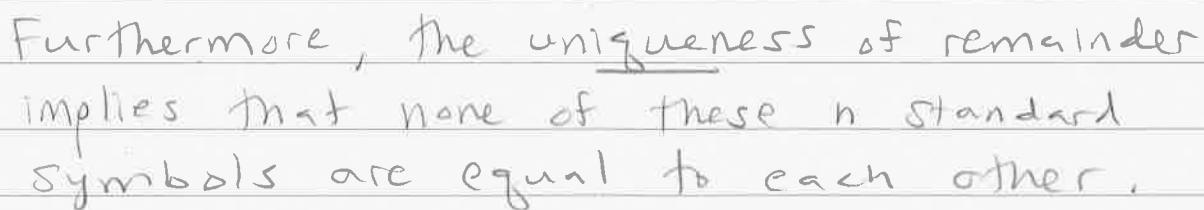 Furthermore, the uniqueness of remainder
implies that none of these n standard
symbols are equal to each other.